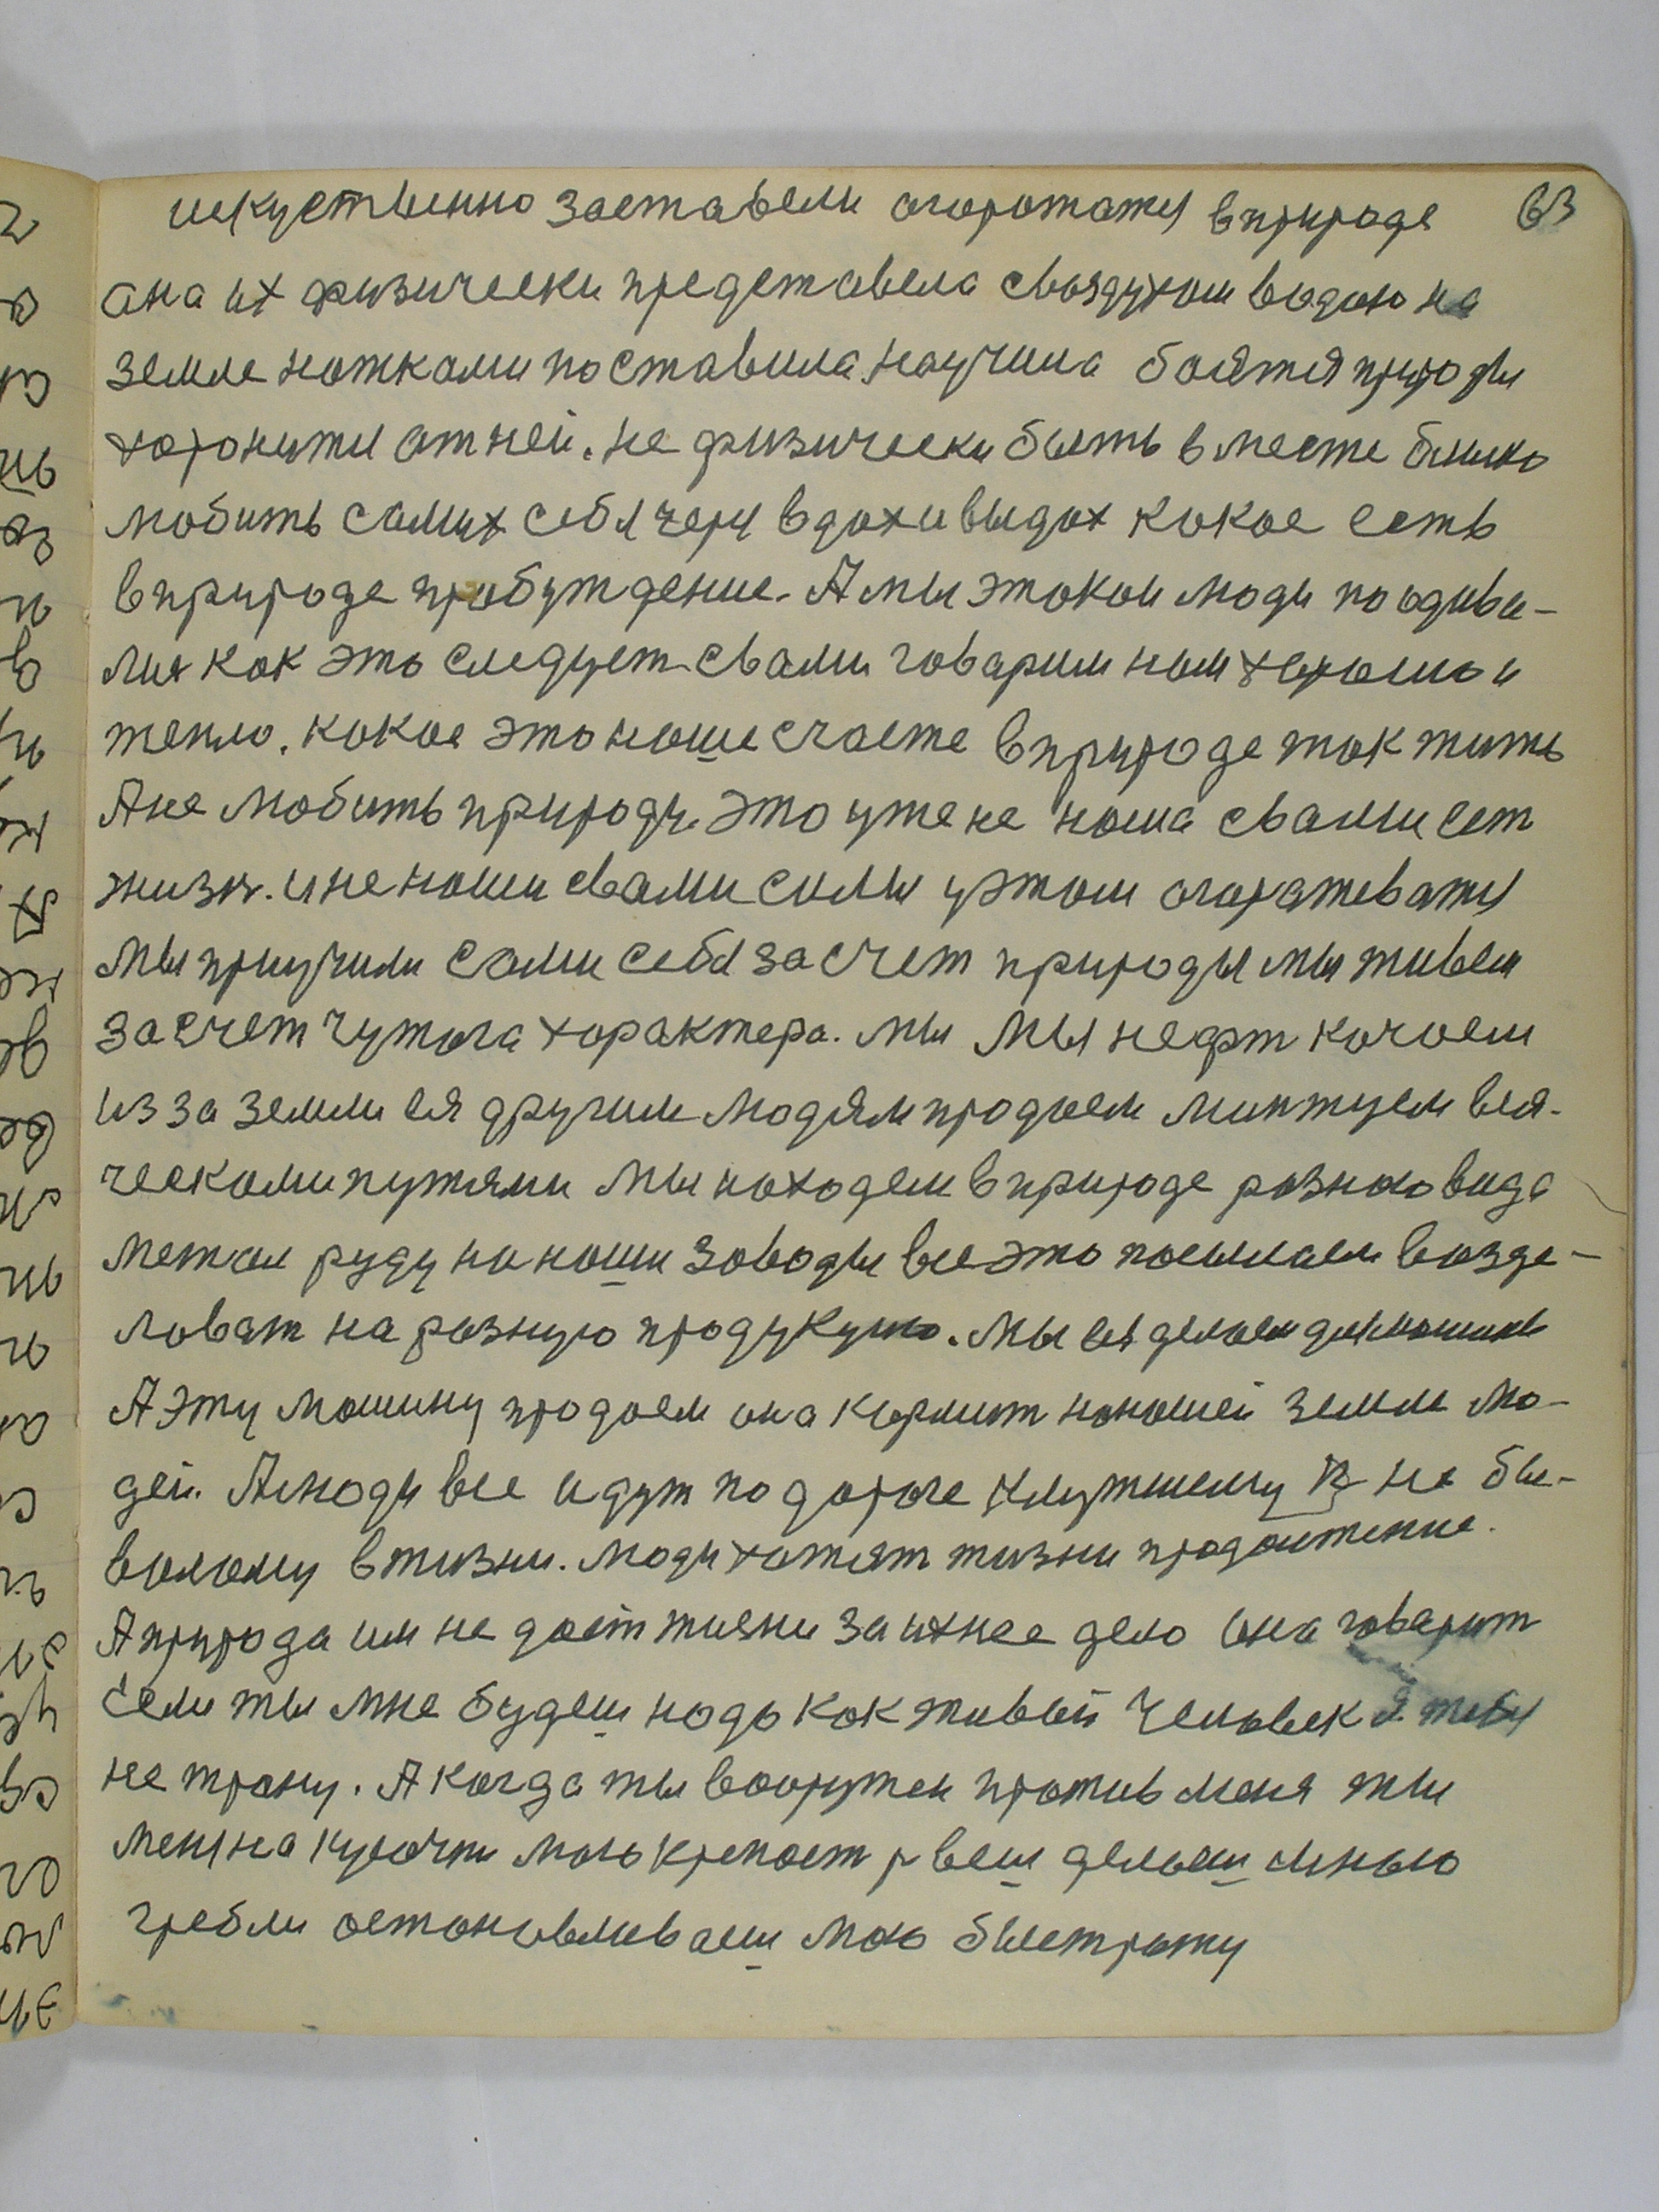 искуственно заставели огорожатя в природе 63
она их физически представела своздухом водою на
земле ножками поставила, научила боятя природы
хоронитя отней. не физически быть вместе близко
любить самих себя через вдох и выдох какое есть
в природе пробуждение. А мы этакои люди поодива-
лися как это следует свами говарим нам хорошо и
тепло. какое это наше счасте в природе так жить
А не любить природу. это уже не наша свами ест
жизн. и не наши свами силы у этом огоражеватя
мы приучили сами себя за счет природы мы живем
за счет чужога характера. мы мы нефт качаем
из за земли ея другим людям продаем миняем вся-
ческами путями мы находем в природе разнаовида
метал руду на наши заводы все это посылаем возде-
ловат на разную продукцию. мы ея делаем для машины
А эту машину продаем она кормит на нашей земле лю-
дей. А люди все идут по дороге к лутшему не бы-
валому в жизни. люди хотят жизни продолжение.
А природа им не даёт жизни за ихнее дело она говарит
если ты мне будеш надо как живый человек я тебя
не трону. А когда ты вооружен против меня ты
меня на кусочки мою крепаст рвеш делаеш мною
гребли остонавлеваеш мою быстрату